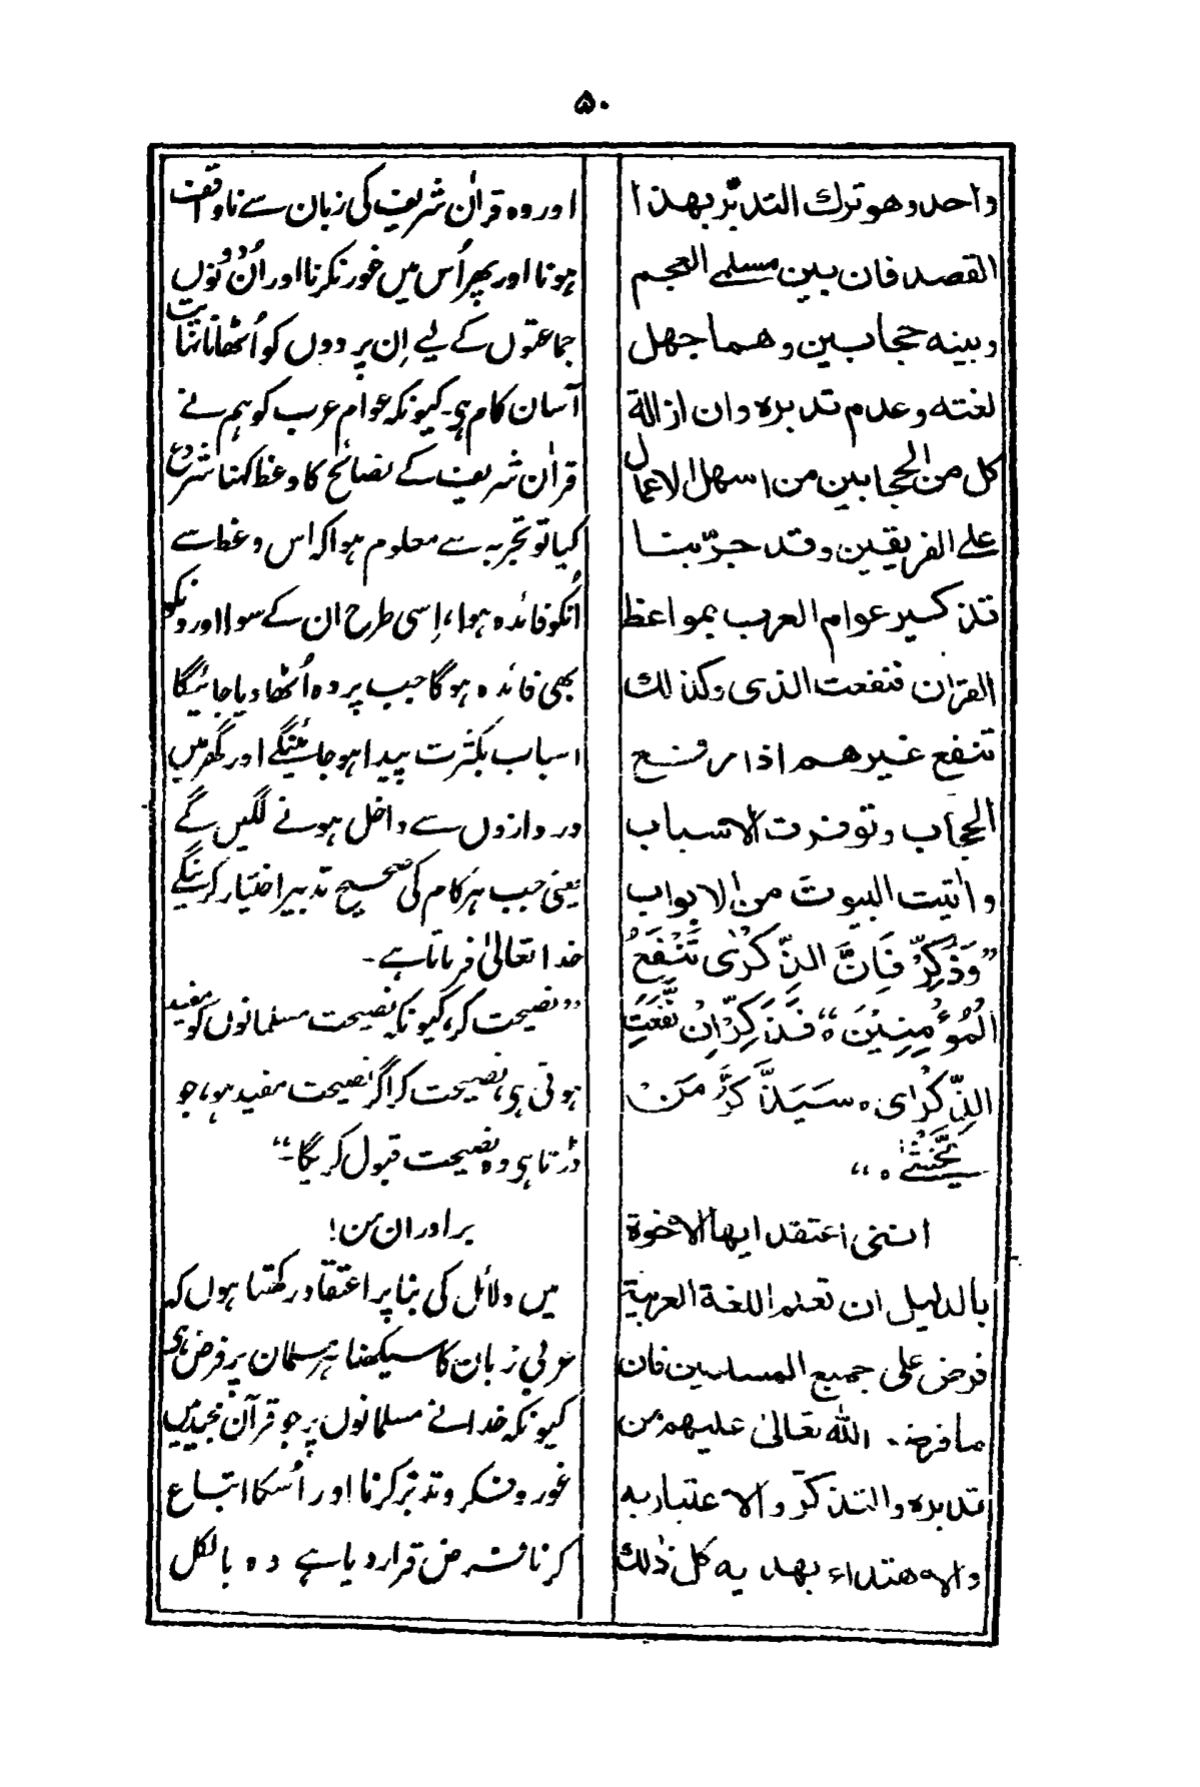 ۵۰
واحد وهو ترك التدبّر بهذا
القصد فان بين مسلمي العجم
وبينه حجابين وهما جهل
لغته وعدم تدبره وان ازالة
كل من الحجابين من اسهل الاعمال
على الفريقين وقد جرّبنا
تذكير عوام العرب بمواعظ
القرآن فنفعت الذى وكذلك
تنفع غيرهم اذا رفع
الحجاب وتوفرت الاسباب
واتيت البيوت من الابواب
”وَذَكِّرْ فَاِنَّ الذِّكْرٰى تَنْفَعُ
الْمُؤْمِنِيْنَ ه“ فَذَكِّرْ اِنْ نَّفَعَتِ
الذِّكْرٰى ه سَيَذَّكَّرُ مَنْ
يَّخْشٰى ه “
اننى اعتقد ايها الاخوة
بالدليل ان تعلم اللغة العربية
فرض على جميع المسلمين فان
ما فرضه الله تعالىٰ عليهم من
تدبره والتذكّر والاعتبار به
والاهتداء بهديه كل ذٰلك
اور وہ قرآن شریف کی زبان سے ناواقف
ہونا اور پھر اُس میں غور نکرنا اور اُن دونوں
جماعتوں کے لیے اِن پردوں کو اُٹھانا نہایت
آسان کام ہی۔ کیونکہ عوام عرب کو ہم نے
قرآن شریف کے نصائح کا وعظ کہنا شروع
کیا تو تجربہ سے معلوم ہوا کہ اس وعظ سے
اُنکو فائدہ ہوا، اِسی طرح ان کے سوا اورونکو
بھی فائدہ ہوگا جب پردہ اُٹھا دیا جائیگا
اسباب بکثرت پیدا ہو جائینگے اور گھر میں
دروازوں سے داخل ہونے لگیں گے
یعنی جب ہر کام کی صحیح تدبیر اختیار کرینگے
خدا تعالیٰ فرماتا ہے۔
”نصیحت کر، کیونکہ نصیحت مسلمانوں کو مفید
ہوتی ہی، نصیحت کر اگر نصیحت مفید ہو، جو
ڈرتا ہی وہ نصیحت قبول کریگا۔“
برادران من!
میں دلائل کی بنا پر اعتقاد رکھتا ہوں کہ
عربی زبان کا سیکھنا ہر مسلمان پر فرض ہی
کیونکہ خدا نے مسلمانوں پر جو قرآن مجید میں
غور و فکر و تدبّر کرنا اور اُسکا اتباع
کرنا فرض قرار دیا ہے وہ بالکل